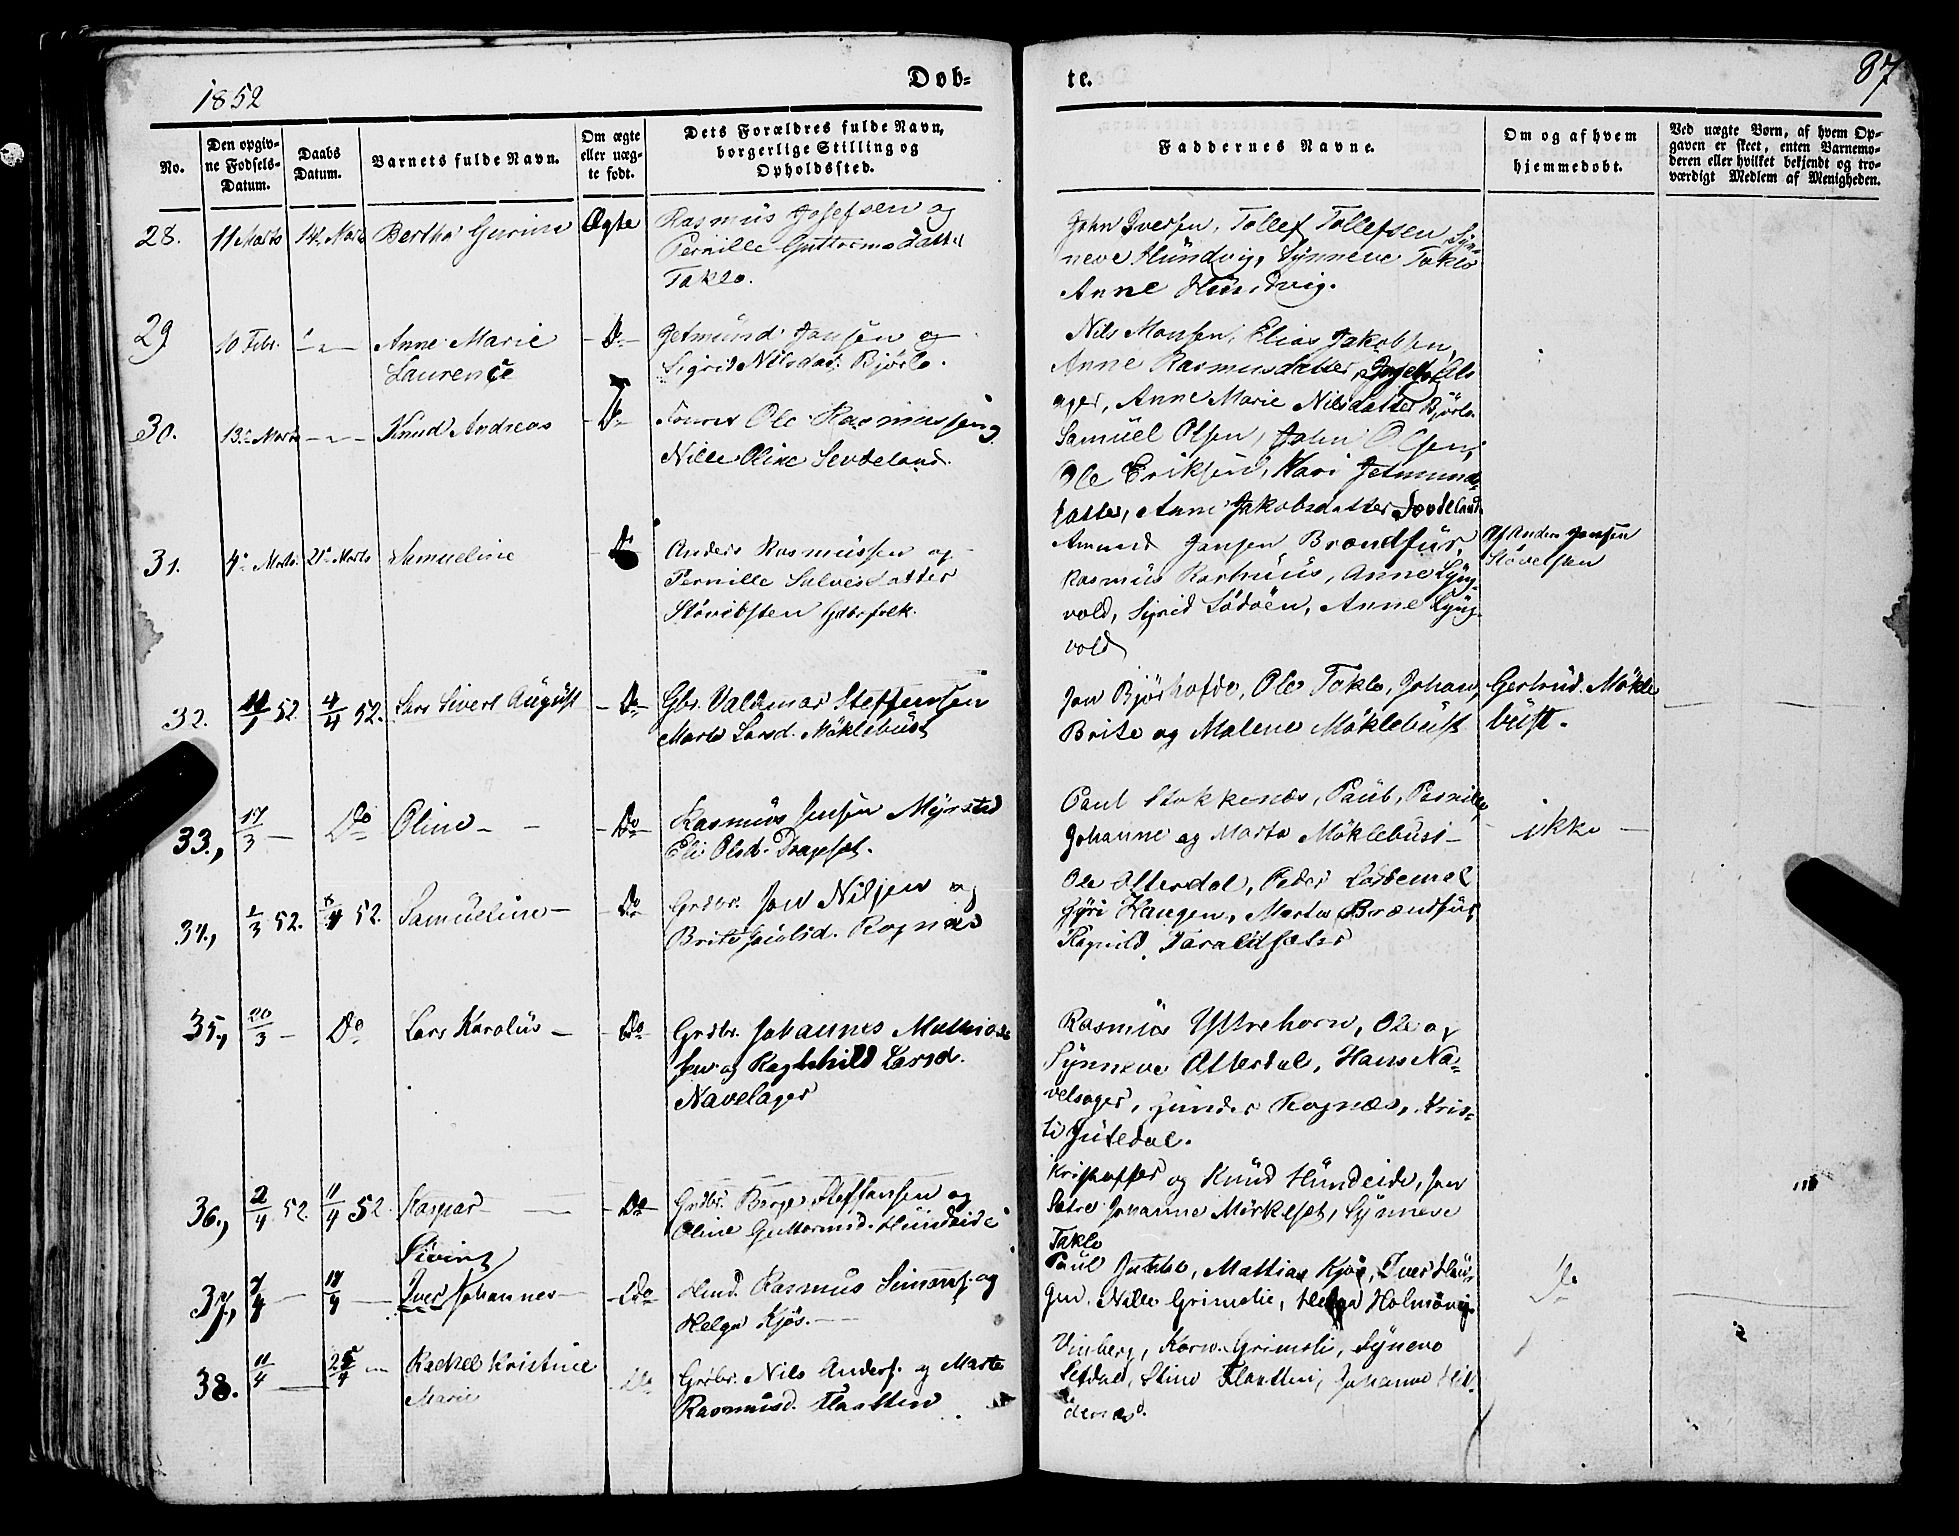 1852
Døb-
te.
87
No.
Den opgiv-
ne Fødsels-
Datum.
Daabs
Datum.
Barnets fulde Navn.
Om ægte
eller uæg-
te født.
Dets Forældres fulde Navn,
borgerlige Stilling og
Opholdssted.
Faddernes Navne.
Om og af hvem
hjemmedøbt.
Ved uægte Børn, af hvem Op-
gaven er skeet, enten Barnemo-
deren eller hvilket bekjendt og tro-
værdigt Medlem af Menigheden.
28.
11 Marts
14. Marts
Berthe Gurine
Ægte
Rasmus Josefsen og
Pernille Guttormsdatter
Taklo.
John Iversen, Tollef Tollefsen, Syn-
neve Hundvig, Synneve Taklo
Anne Hundvig.
29
10 Febr.
Anne Marie
Laurence
Do
Jetmund Jansen og
Sigrid Nilsdat: Bjørlo.
Nils Monsen, Elias Jakobsen,
Anne Rasmusdatter,
ager, Anne Marie Nilsdatter Bjørlo
30.
13de Marts
Knud Andreas
Do
Ole Rasmussen og
Nille Oline Sevdeland.
Samuel Olsen, John Olsen,
Ole Eriksen, Kari Jetmunds-
datter, Anne Jakobsdatter Sevdeland
31.
4de Marts
21de Marts
Samueline
Do
Anders Rasmussen og
Pernille Salvesdatter
Støvelsten Gbrfolk.
Amund Jansen Brandfur,
Rasmus Rorhuus, Anne Lyng-
vold, Sigrid Sødøen, Anne Lyng-
vold
Af Anders Jansen
Støvelsten
32.
1 52.
4/4 52.
Lars Sivert August
Do
Gbr. Valdemar Steffensen
Marte Larsd. Møklebust
Jon Bjørhofde, Ole Taklo, Johan,
Brite og Malene Møklebust
Gertrud Mökle
bust.
33.,
17/3
Do
Oline
Do
Rasmus Jensen Myrsted
Eli Olsd. Drageset.
Paul Stokkenæs, Paul, Pernille,
Johanne og Marta Møklebust
ikke
34.,
1/3 52.
4 52.
Samueline
Do
Grdbr. Jon Nilsen og
Brite Jacobsd. Rognæs
Ole Otterdal, Peder
Haugen, Marta Brandfur,
Ragnild Taraldsæter
35.,
20/3
Do
Lars Karolus
Do
Grdbr. Johannes Mathias-
sen og Raghnild Larsd.
Navelsager
Rasmus Yttrehorn, Ole og
Synneve Otterdal, Hans Na-
velsager, Gunder Rognæs, Kris-
ti Jutedal.
36.,
2/4 52.
11/4 52.
Kaspar
Do
Grdbr. Berge Steffensen og
Oline Guttormsd. Hundeide
Kristoffer og Knud Hundeide, Jon
Sætre Johanne Mørkeset, Synneve
Taklo
37.,
7/4
Sivert
Iver Johannes
Do
Husd. Rasmus Simons. og
Helga Kjøs.
Paul, Mattias Kjøs, Iver Hau-
gen, Nille Grimelie, Helga Holmøvig
Do
38.
11/4
25/4
Rachel Kristine
Marie
Do
Grdbr. Nils Anders. og Marte
Rasmusd. Flaatten
Vinberg, Karen Grimeli, Syneve
Setdal, Stine Flaatten, Johanne